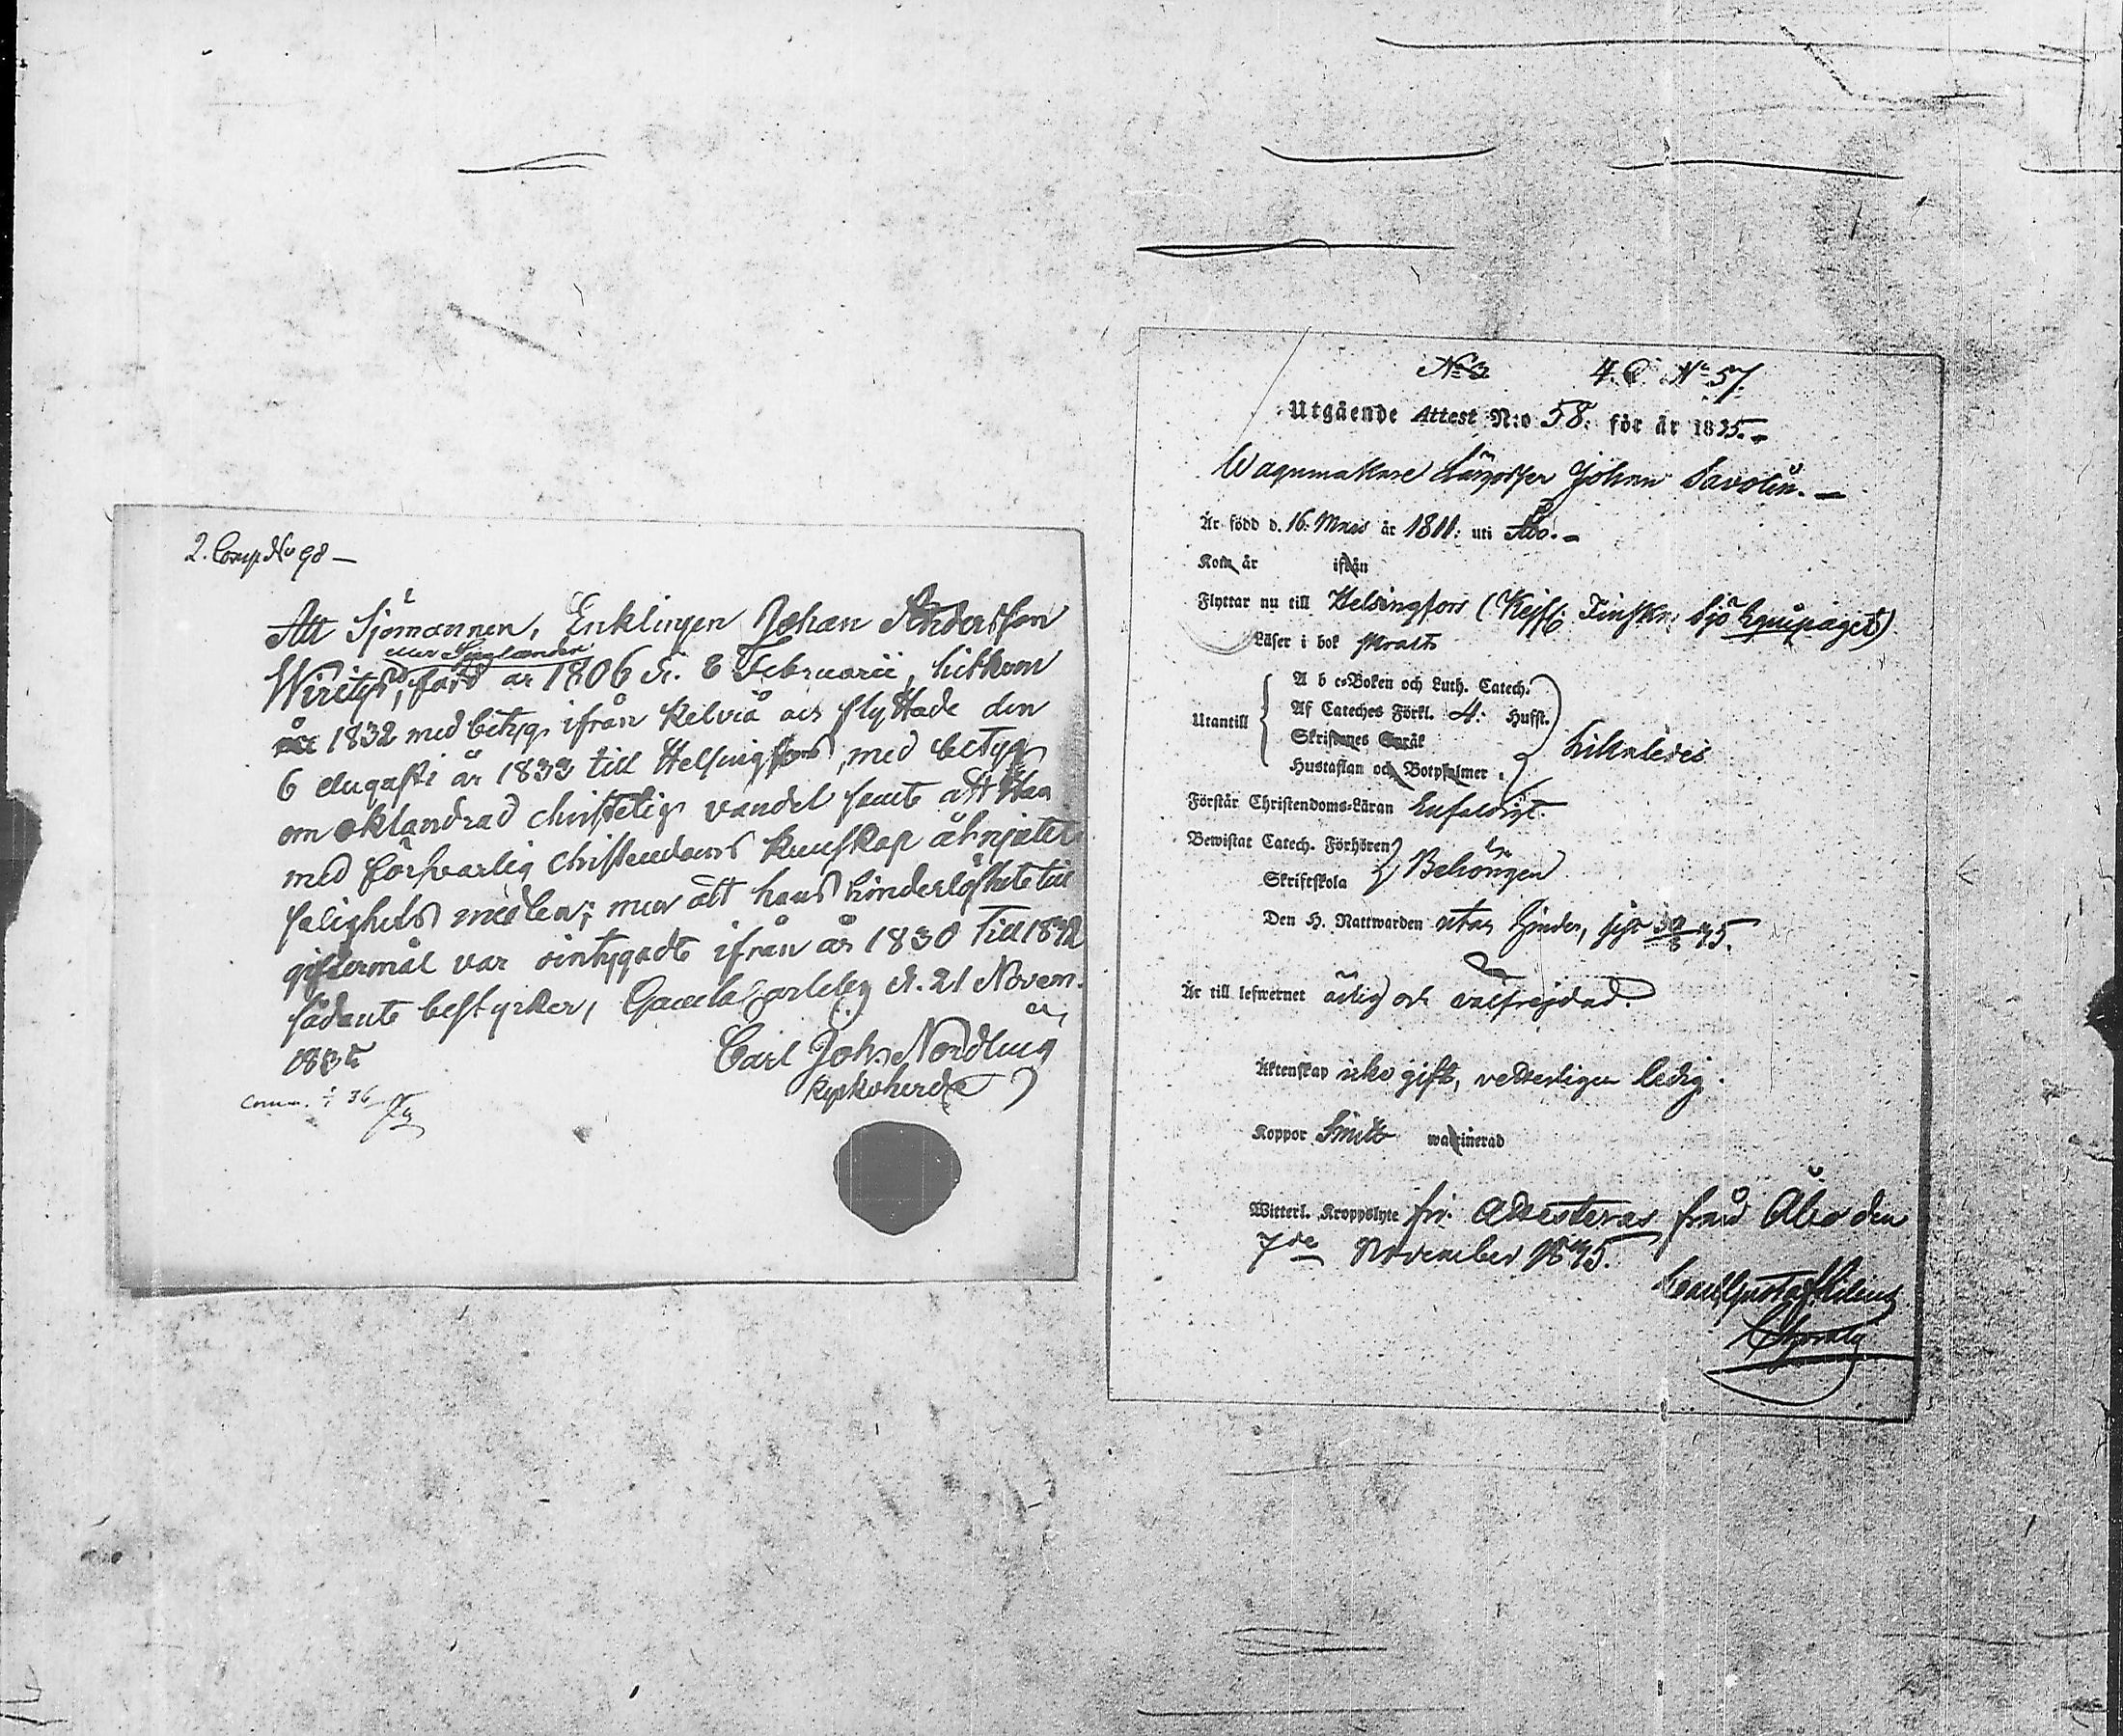 2. Comp. No 98 —
Att Sjömannen, Enklingen Johan Andersson
eller Sjöglander
Wirelig, född år 1806 d. 8 Februarii, hitkom
år 1832 med betyg ifrån Kelviå och flyttade den
6 Augusti år 1833 till Helsingfors, med betyg
om oklandrad christelig vandel samt att Han
med försvarlig christendoms kunskap åtnjutit
salighets medlen; men att hans hinderlöshet till
giftermål var ointygadt ifrån år 1830 till 1832
sådant bestyrker, Gamla Carleby d. 21 Novem.
1835
Carl Joh. Nordling
Kyrkoherde
Comm. 36
No 3 4. C. No 57.
Utgående Attest N:o 58. för år 1835. —
Wagnmakare Lärgosse Johan Savolin. —
Är född d. 16. Mars år 1811: uti Åbo. —
Kom år ifrån
Flyttar nu till Helsingfors (Kejs. Finska Sjö Equipaget)
Läser i bok svalt
Utantill
A b c-Boken och Luth. Catech.
Af Cateches Förkl. 4. Hufst.
Skriftenes Språk
Hustaflan och Botpsalmer.
Likaledes
Förstår Christendoms-Läran Enfaldigt.
Bewistat Catech. Förhören
Skriftskola
Behörigen
Den H. Nattwarden utan hinder, sist 30/8 35.
Är till lefwernet ärlig och välfrejdad.
Äktenskap icke gift, vetterligen ledig.
Koppor Smitt waccinerad
Witterl. Kroppslyte fri. Attesteras från Åbo den
7de November 1835.
Carl Gustaf